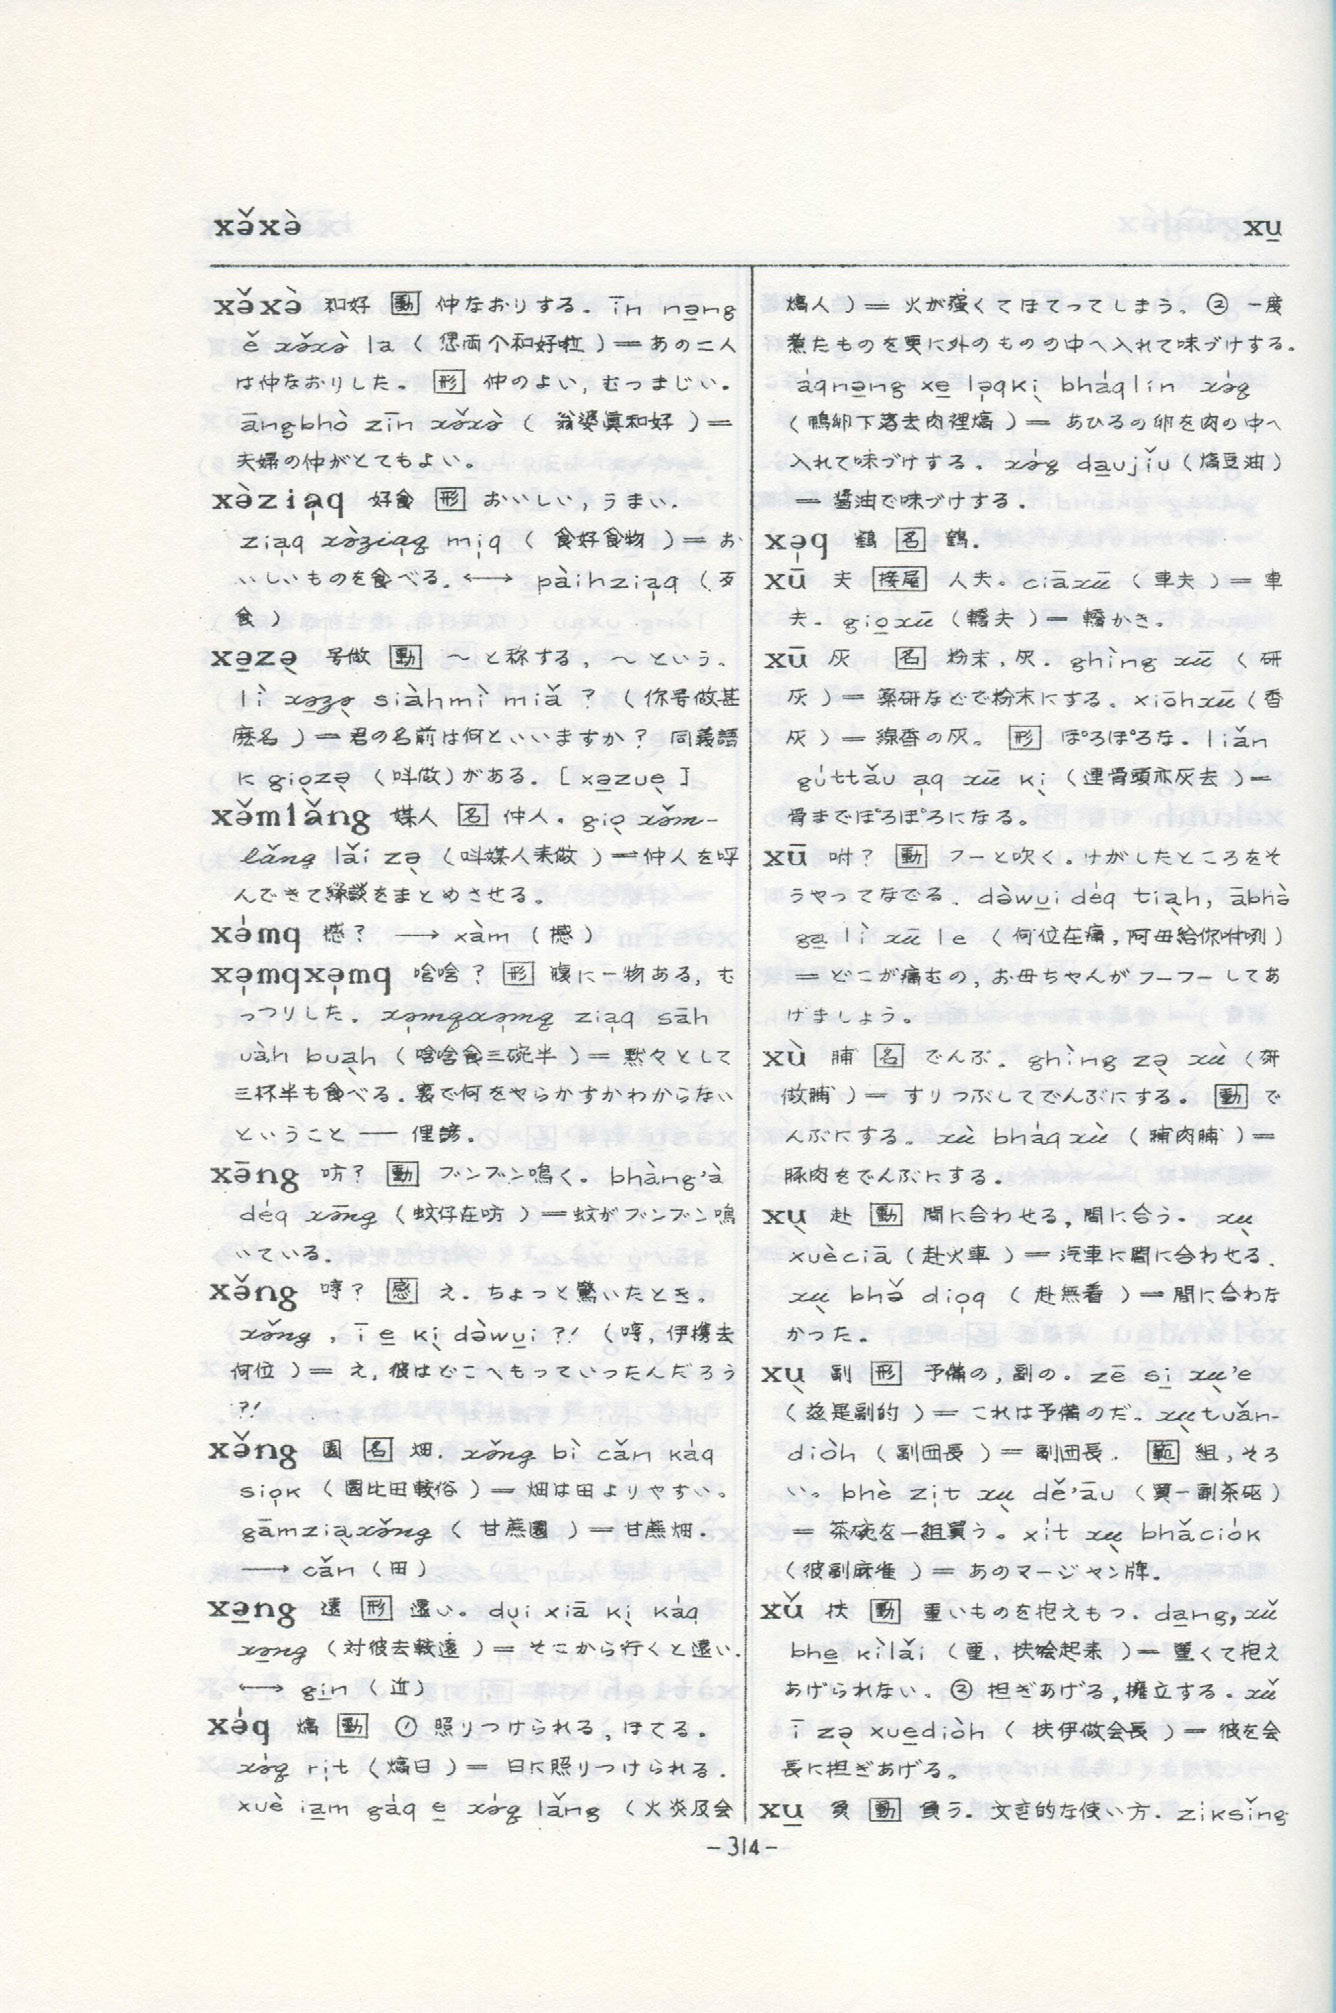 xə̌xə̀
xu̱
xə̌xə̀ 和好 動 仲なおりする. īn nə̱ng
ě xə̌xə̀ la ( 偲両个和好啦 ) ＝ あの二人
は仲なおりした。 形 仲のよい, むつまじい.
āngbhò zīn xə̌xə̀ ( 翁婆眞和好 ) ＝
夫婦の仲がとてもよい。
xə̀zia̍q 好食 形 おいしい, うまい.
zia̍q xə̀zia̍q mi̍q ( 食好食物 ) ＝ お
いしいものを食べる. ←→ pàihzia̍q ( 歹
食 )
xə̱zə̖ 号做 動 〜と称する, 〜という.
lì xə̱zə̖ siàhmì miǎ ? ( 你号做甚
麽名 ) ＝ 君の名前は何といいますか? 同義語
K gio̖zə̖ ( 叫做 ) がある. [ xə̱zue̖ ]
xə̌mlǎng 媒人 名 仲人. gio̖ xə̌m-
lǎng lǎi zə̖ ( 叫媒人来做 ) ＝ 仲人を呼
んできて縁談をまとめさせる。
xə́mq 撼? → xàm ( 撼 )
xə̍mqxə̍mq 唅唅? 形 腹に一物ある, む
っつりした. xə̍mqxə̍mq zia̍q sāh
uàh bua̖h ( 唅唅食三碗半 ) ＝ 黙々として
三杯半も食べる. 裏で何をやらかすかわからない
ということ — 俚諺。
xə̄ng 吭? 動 ブンブン鳴く。 bhàng'à
déq xə̄ng ( 蚊仔在吭 ) ＝ 蚊がブンブン鳴
いている.
xə̌ng 哼? 感 え. ちょっと驚いたとき。
xə̌ng , ī e̱ ki̖ də̀wu̱i ?! ( 哼, 伊携去
何位 ) ＝ え, 彼はどこへもっていったんだろう
?!
xə̌ng 園 名 畑. xə̌ng bì cǎn káq
sio̍k ( 園比田較俗 ) ＝ 畑は田よりやすい。
gāmzia̖xə̌ng ( 甘蔗園 ) ＝ 甘蔗畑.
→ cǎn ( 田 )
xə̱ng 遠 形 遠い. du̖i xiā ki̖ káq
xə̱ng ( 対彼去較遠 ) ＝ そこから行くと遠い.
←→ gi̱n ( 近 )
xə́q 熇 動 ① 照りつけられる, ほてる.
xə́q ri̍t ( 熇日 ) ＝ 日に照りつけられる.
xuè ia̱m gáq e̱ xə́q lǎng ( 火炎及会
熇人 ) ＝ 火が強くてほてってしまう。 ② 一度
煮たものを更に外のものの中へ入れて味づけする.
áqnə̱ng xe̱ lə̍qki̖ bháqlín xə́q
( 鴨卵下落去肉裡熇 ) ＝ あひるの卵を肉の中へ
入れて味づけする. xə́q da̱ujiǔ ( 熇豆油 )
＝ 醤油で味づけする.
xə̍q 鶴 名 鶴.
xū 夫 接尾 人夫. ciāxū ( 車夫 ) ＝ 車
夫. gio̱xū ( 轎夫 ) ＝ 轎かき。
xū 灰 名 粉末, 灰. ghìng xū ( 研
灰 ) ＝ 薬研などで粉末にする。 xiōhxū ( 香
灰 ) ＝ 線香の灰。 形 ぼろぼろな. liǎn
gúttǎu a̍q xū ki̖ ( 連骨頭亦灰去 ) ＝
骨までぼろぼろになる。
xū 咐? 動 フーと吹く. けがしたところをそ
うやってなでる. də̀wu̱i déq tia̖h, ābhə̀
ga̱ lì xū le ( 何位在痛, 阿母給你咐咧 )
＝ どこが痛むの, お母ちゃんがフーフーしてあ
げましょう。
xù 脯 名 でんぶ. ghìng zə̖ xù ( 研
做脯 ) ＝ すりつぶしてでんぶにする。 動 で
んぶにする. xù bháq xù ( 脯肉脯 ) ＝
豚肉をでんぶにする.
xu̖ 赴 動 間に合わせる, 間に合う. xu̖
xuècīa ( 赴火車 ) ＝ 汽車に間に合わせる.
xu̖ bhə̌ dio̍q ( 赴無着 ) ＝ 間に合わな
かった。
xu̖ 副 形 予備の, 副の. zē si̱ xu̖'e
( 茲是副的 ) ＝ これは予備のだ. xu̖tuǎn-
diòh ( 副団長 ) ＝ 副団長. 範 組, そろ
い. bhè zi̍t xu̖ dě'āu ( 買一副茶砙 )
＝ 茶碗を一組買う. xít xu̖ bhǎciók
( 彼副麻雀 ) ＝ あのマージャン牌.
xǔ 扶 動 重いものを抱えもつ. da̱ng, xǔ
bhe̱ kìlǎi ( 重, 扶𣍐起来 ) ＝ 重くて抱え
あげられない. ② 担ぎあげる, 擁立する. xǔ
ī zə̖ xue̱diòh ( 扶伊做会長 ) ＝ 彼を会
長に担ぎあげる。
xu̱ 負 動 負う. 文言的な使い方. ziksǐng
– 314 –